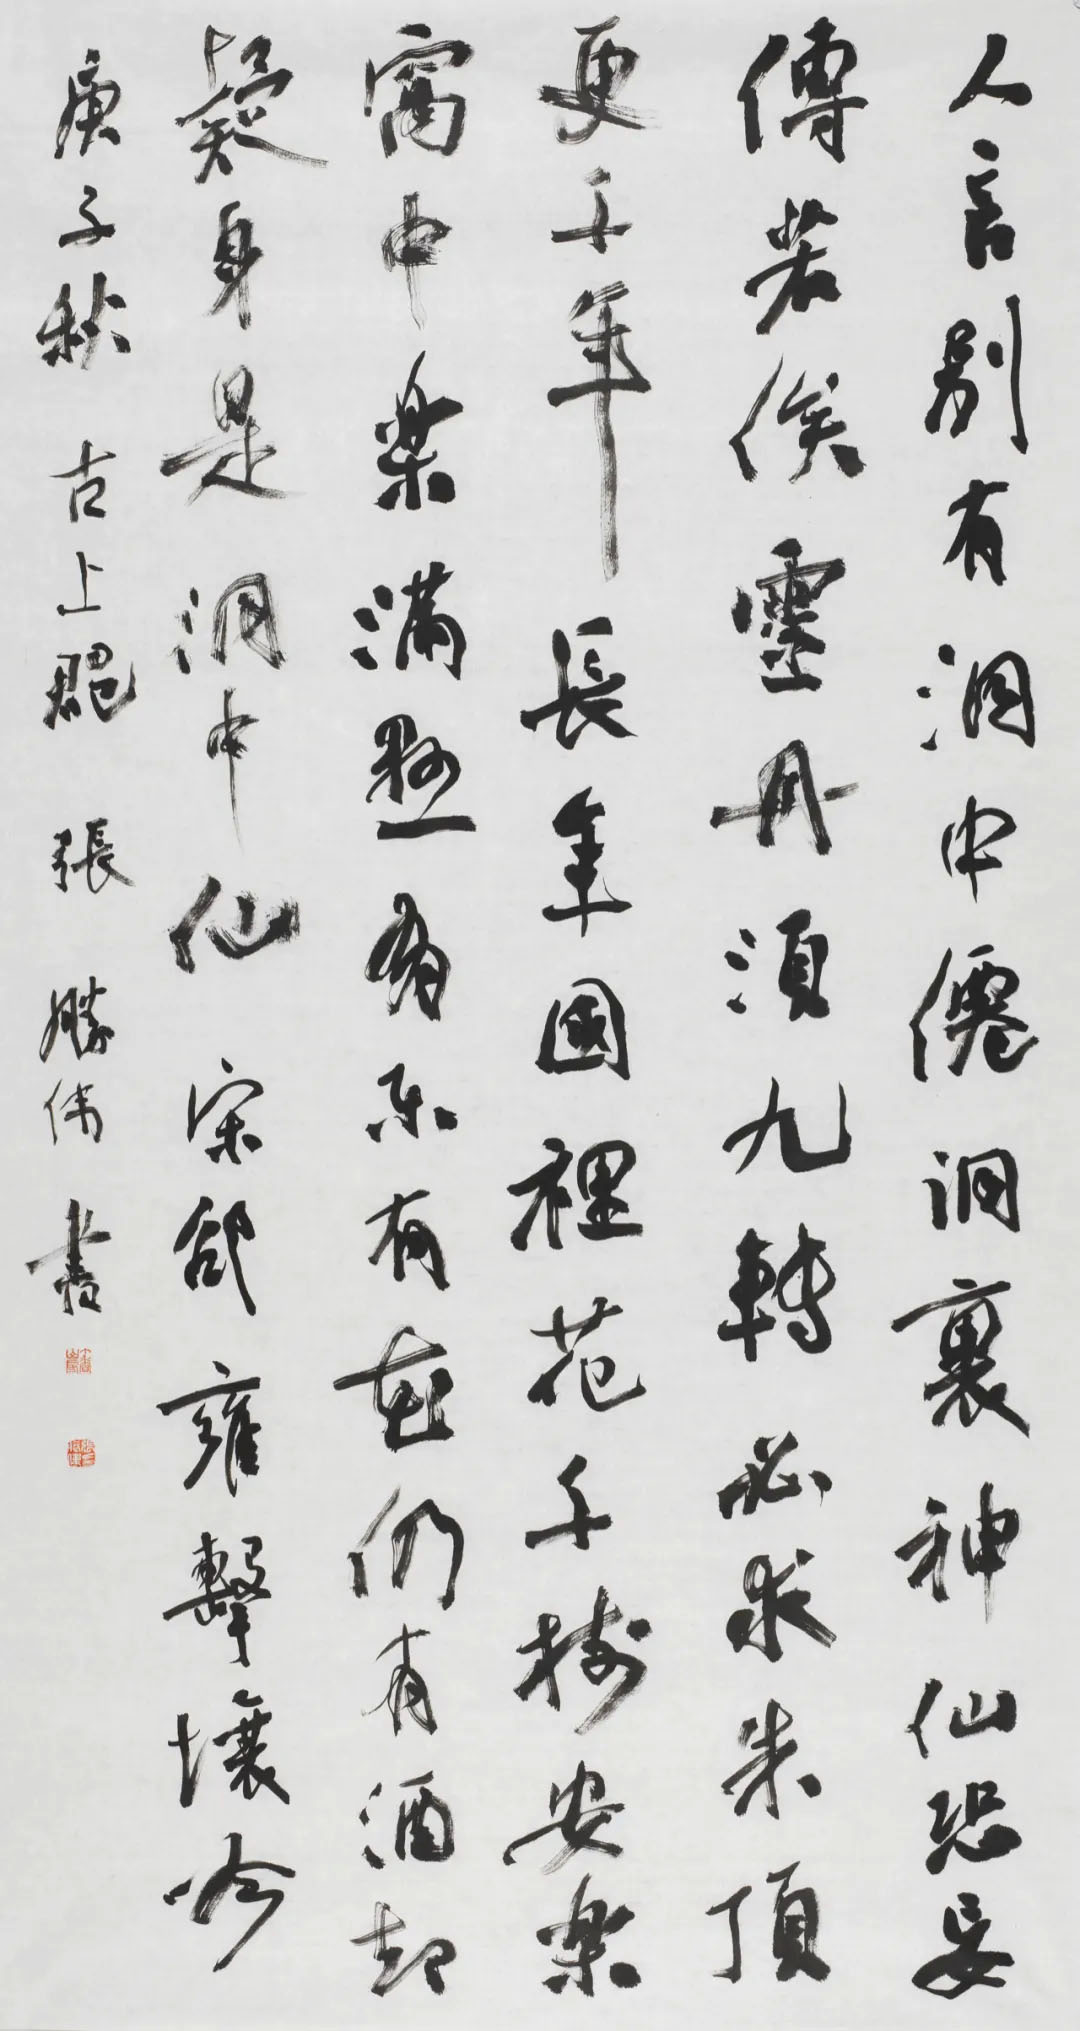 人言別有洞中僊洞裏神仙恐妄
傳若俟靈丹須九轉必求朱頂
更千年長年國裡花千樹安樂
窩中樂滿懸有樂有花仍有酒却
疑身是洞中仙 宋邵雍擊壤吟
庚子秋 古上郡 張勝偉書